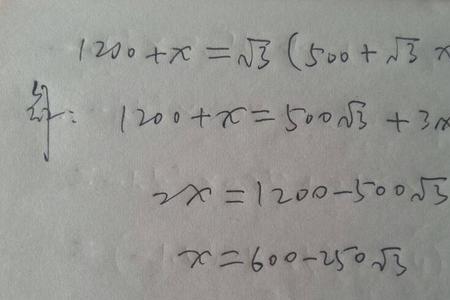 1200+x=√3(500+√3x
解: 1200+x=500√3+3x
2x=1200-500√3
x=600-250√3